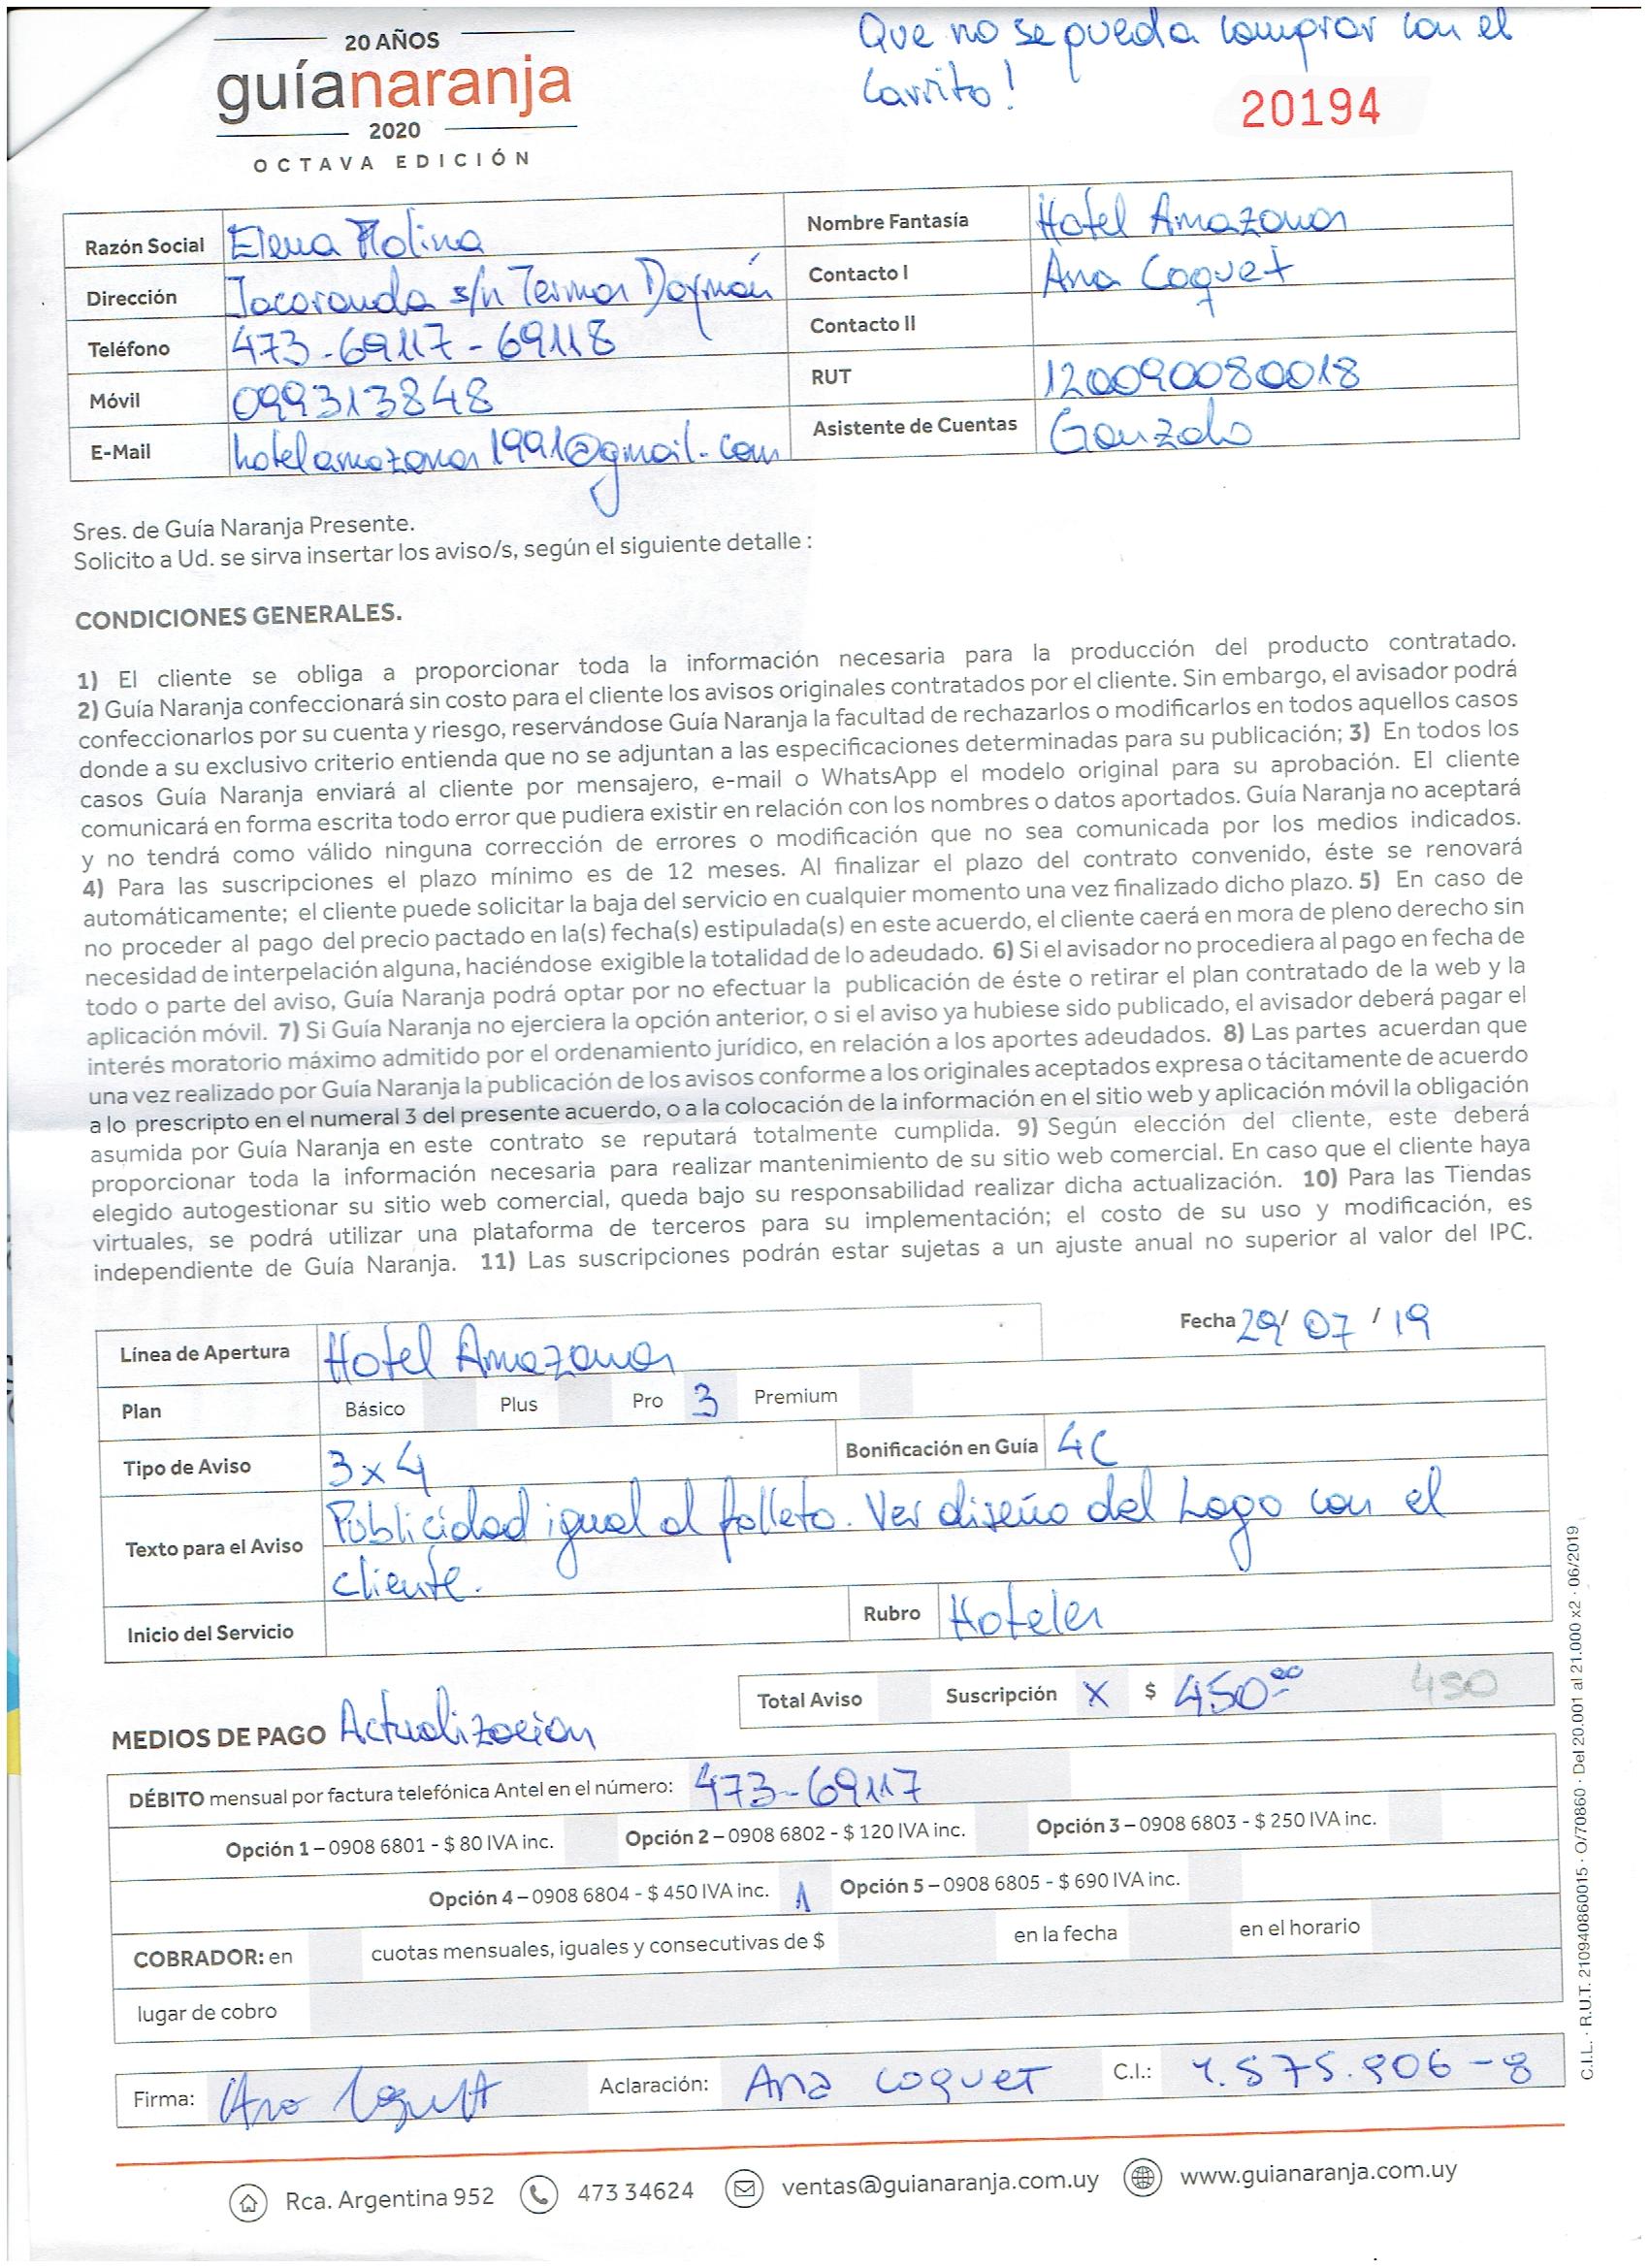 Que no se pueda comprar con el
Carrito!
20 AÑOS
guíanaranja
2020
OCTAVA EDICIÓN
20194
Razón Social Elena Molina Nombre Fantasía Hotel Amazonas
Dirección Jacaranda s/n Termas Daymán Contacto I Ana Coquet
Teléfono 473-69117-69118 Contacto II
Móvil 099313848 RUT 120090080018
E-Mail hotelamazonas1991@gmail.com Asistente de Cuentas Gonzalo
Sres. de Guía Naranja Presente.
Solicito a Ud. se sirva insertar los aviso/s, según el siguiente detalle :
CONDICIONES GENERALES.
1) El cliente se obliga a proporcionar toda la información necesaria para la producción del producto contratado.
2) Guía Naranja confeccionará sin costo para el cliente los avisos originales contratados por el cliente. Sin embargo, el avisador podrá
confeccionarlos por su cuenta y riesgo, reservándose Guía Naranja la facultad de rechazarlos o modificarlos en todos aquellos casos
donde a su exclusivo criterio entienda que no se adjuntan a las especificaciones determinadas para su publicación; 3) En todos los
casos Guía Naranja enviará al cliente por mensajero, e-mail o WhatsApp el modelo original para su aprobación. El cliente
comunicará en forma escrita todo error que pudiera existir en relación con los nombres o datos aportados. Guía Naranja no aceptará
y no tendrá como válido ninguna corrección de errores o modificación que no sea comunicada por los medios indicados.
4) Para las suscripciones el plazo mínimo es de 12 meses. Al finalizar el plazo del contrato convenido, éste se renovará
automáticamente; el cliente puede solicitar la baja del servicio en cualquier momento una vez finalizado dicho plazo. 5) En caso de
no proceder al pago del precio pactado en la(s) fecha(s) estipulada(s) en este acuerdo, el cliente caerá en mora de pleno derecho sin
necesidad de interpelación alguna, haciéndose exigible la totalidad de lo adeudado. 6) Si el avisador no procediera al pago en fecha de
todo o parte del aviso, Guía Naranja podrá optar por no efectuar la publicación de éste o retirar el plan contratado de la web y la
aplicación móvil. 7) Si Guía Naranja no ejerciera la opción anterior, o si el aviso ya hubiese sido publicado, el avisador deberá pagar el
interés moratorio máximo admitido por el ordenamiento jurídico, en relación a los aportes adeudados. 8) Las partes acuerdan que
una vez realizado por Guía Naranja la publicación de los avisos conforme a los originales aceptados expresa o tácitamente de acuerdo
a lo prescripto en el numeral 3 del presente acuerdo, o a la colocación de la información en el sitio web y aplicación móvil la obligación
asumida por Guía Naranja en este contrato se reputará totalmente cumplida. 9) Según elección del cliente, este deberá
proporcionar toda la información necesaria para realizar mantenimiento de su sitio web comercial. En caso que el cliente haya
elegido autogestionar su sitio web comercial, queda bajo su responsabilidad realizar dicha actualización. 10) Para las Tiendas
virtuales, se podrá utilizar una plataforma de terceros para su implementación; el costo de su uso y modificación, es
independiente de Guía Naranja. 11) Las suscripciones podrán estar sujetas a un ajuste anual no superior al valor del IPC.
Fecha 29/ 07 / 19
Línea de Apertura Hotel Amazonas
Plan Básico Plus Pro 3 Premium
Tipo de Aviso 3x4 Bonificación en Guía 4C
Texto para el Aviso Publicidad igual al folleto. Ver diseño del Logo con el
cliente.
Inicio del Servicio Rubro Hoteles
Total Aviso Suscripción X $ 450.00 450
MEDIOS DE PAGO Actualización
DÉBITO mensual por factura telefónica Antel en el número: 473-69117
Opción 1 – 0908 6801 - $ 80 IVA inc. Opción 2 – 0908 6802 - $ 120 IVA inc. Opción 3 – 0908 6803 - $ 250 IVA inc.
Opción 4 – 0908 6804 - $ 450 IVA inc. 1 Opción 5 – 0908 6805 - $ 690 IVA inc.
COBRADOR: en cuotas mensuales, iguales y consecutivas de $ en la fecha en el horario
lugar de cobro
Firma: Ana Coquet Aclaración: Ana COQUET C.I.: 4.575.906-8
Rca. Argentina 952 473 34624 ventas@guianaranja.com.uy www.guianaranja.com.uy
C.I.L. · R.U.T. 210940860015 · O/70860 · Del 20.001 al 21.000 x2 · 06/2019